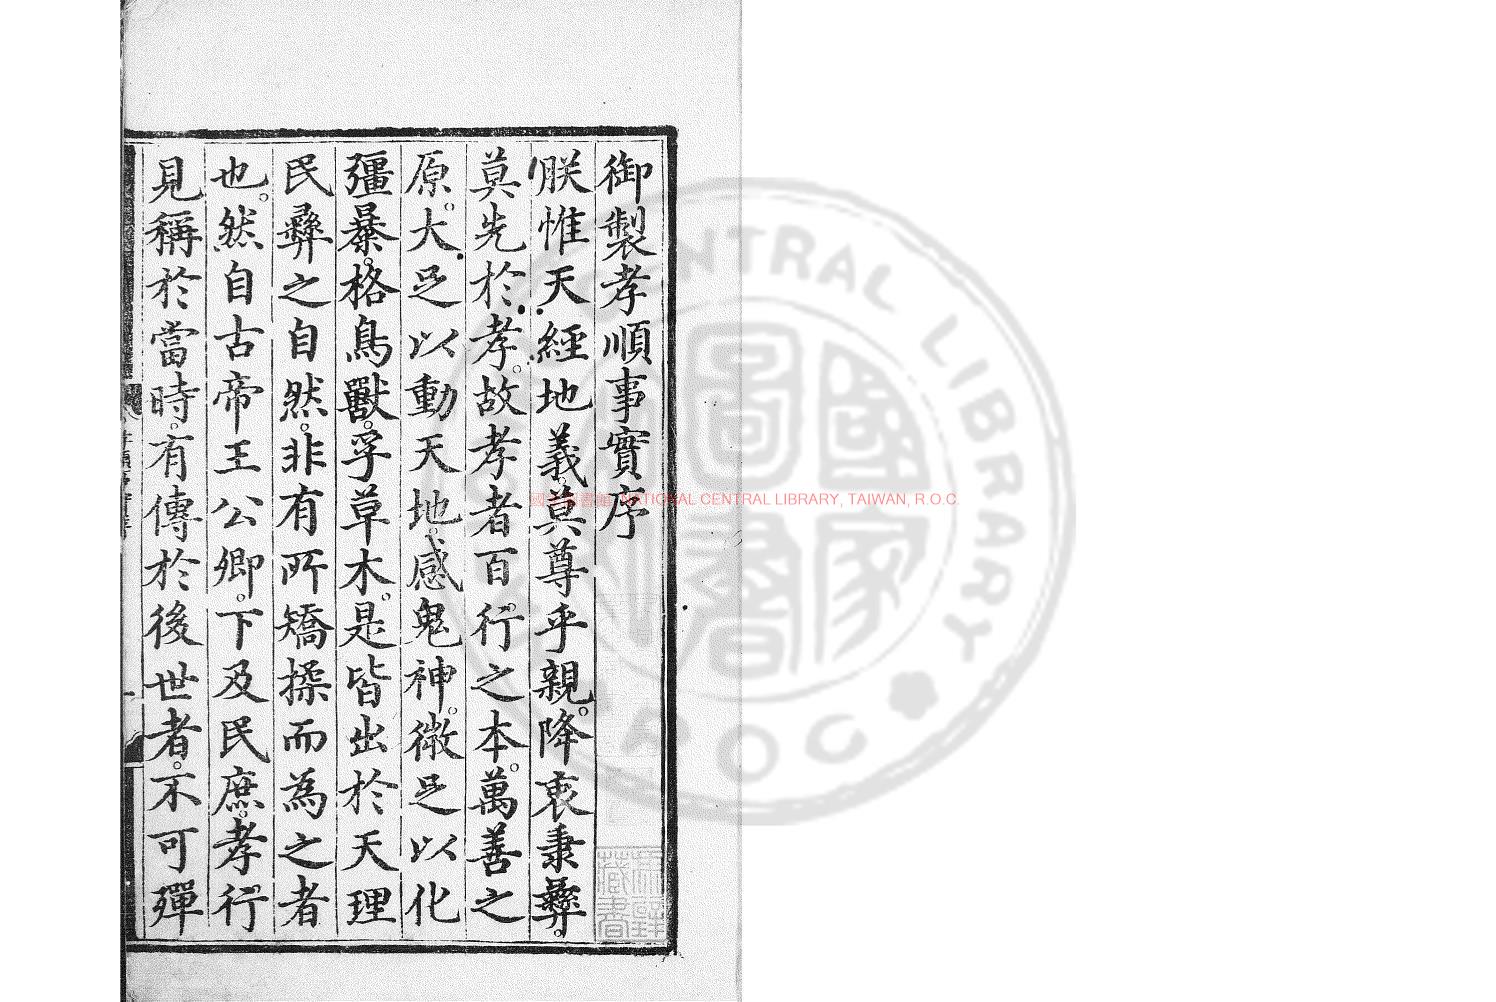 御製孝順事實序
朕惟天經地義。莫尊乎親。降衷秉彝。
莫先於孝。故孝者百行之本。萬善之
原。大足以動天地。感鬼神。微足以化
彊暴。格鳥獸。孚草木。是皆出於天理
民彝之自然。非有所矯揉而為之者
也。然自古帝王公卿。下及民庶。孝行
見稱於當時。有傳於後世者。不可殫
國家圖書館 NATIONAL CENTRAL LIBRARY, TAIWAN, R.O.C.
NATIONAL CENTRAL LIBRARY
R.O.C.
國家圖書館